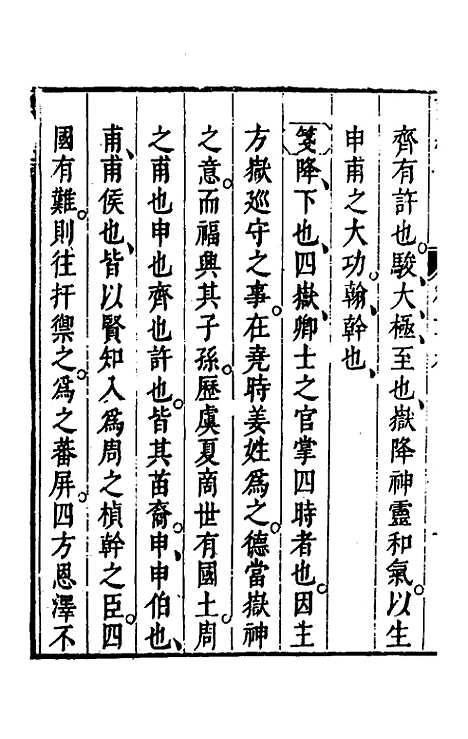 齊有許也。駿、大、極、至也。嶽降神靈和氣。以生
申甫之大功。翰、幹也、
箋降、下也、四嶽、卿士之官掌四時者也。因主
方嶽巡守之事。在堯時姜姓為之。德當嶽神
之意。而福興其子孫。歷虞夏商世有國土。周
之甫也申也齊也許也。皆其苗裔。申、申伯也、
甫、甫侯也、皆以賢知入為周之楨幹之臣。四
國有難。則往扞禦之。為之蕃屏。四方恩澤不